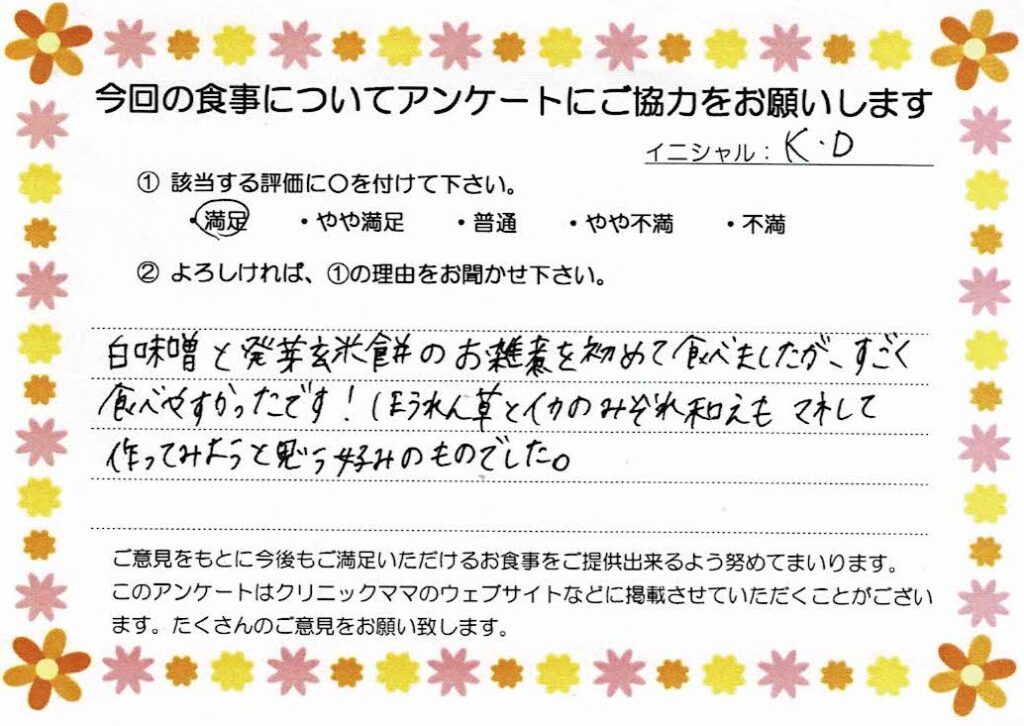 今回の食事についてアンケートにご協力をお願いします
イニシャル：K・D
① 該当する評価に〇を付けて下さい。
・満足 ・やや満足 ・普通 ・やや不満 ・不満
② よろしければ、①の理由をお聞かせ下さい。
白味噌と発芽玄米餅のお雑煮を初めて食べましたが、すごく
食べやすかったです！ほうれん草とイカのみぞれ和えもマネして
作ってみようと思う好みのものでした。
ご意見をもとに今後もご満足いただけるお食事をご提供出来るよう努めてまいります。
このアンケートはクリニックママのウェブサイトなどに掲載させていただくことがござい
ます。たくさんのご意見をお願い致します。